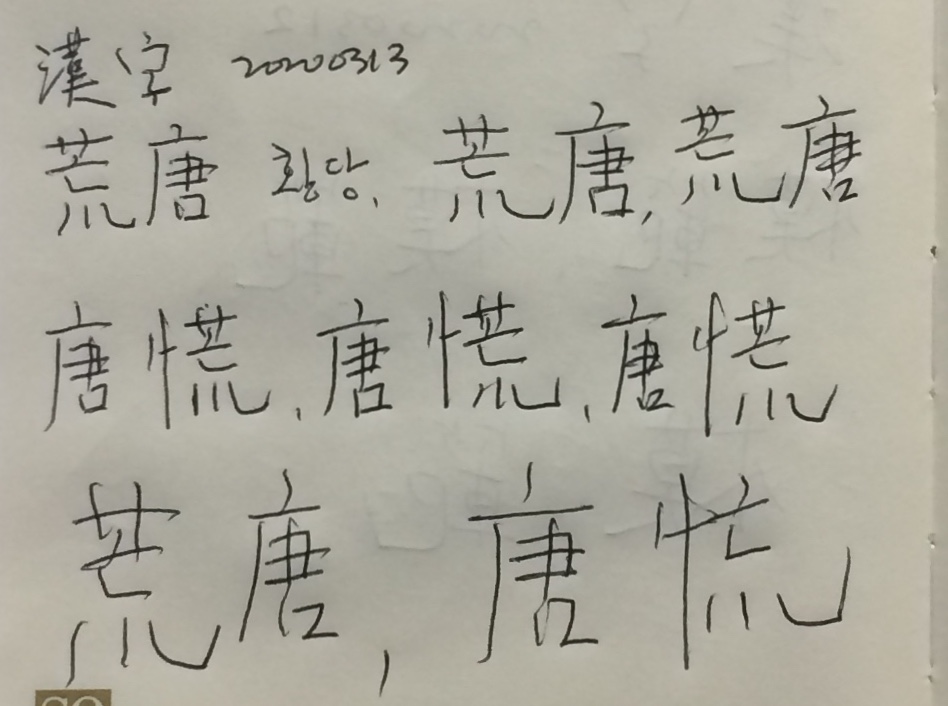 漢字 20200313
荒唐 황당, 荒唐, 荒唐
唐慌, 唐慌, 唐慌
荒唐, 唐慌